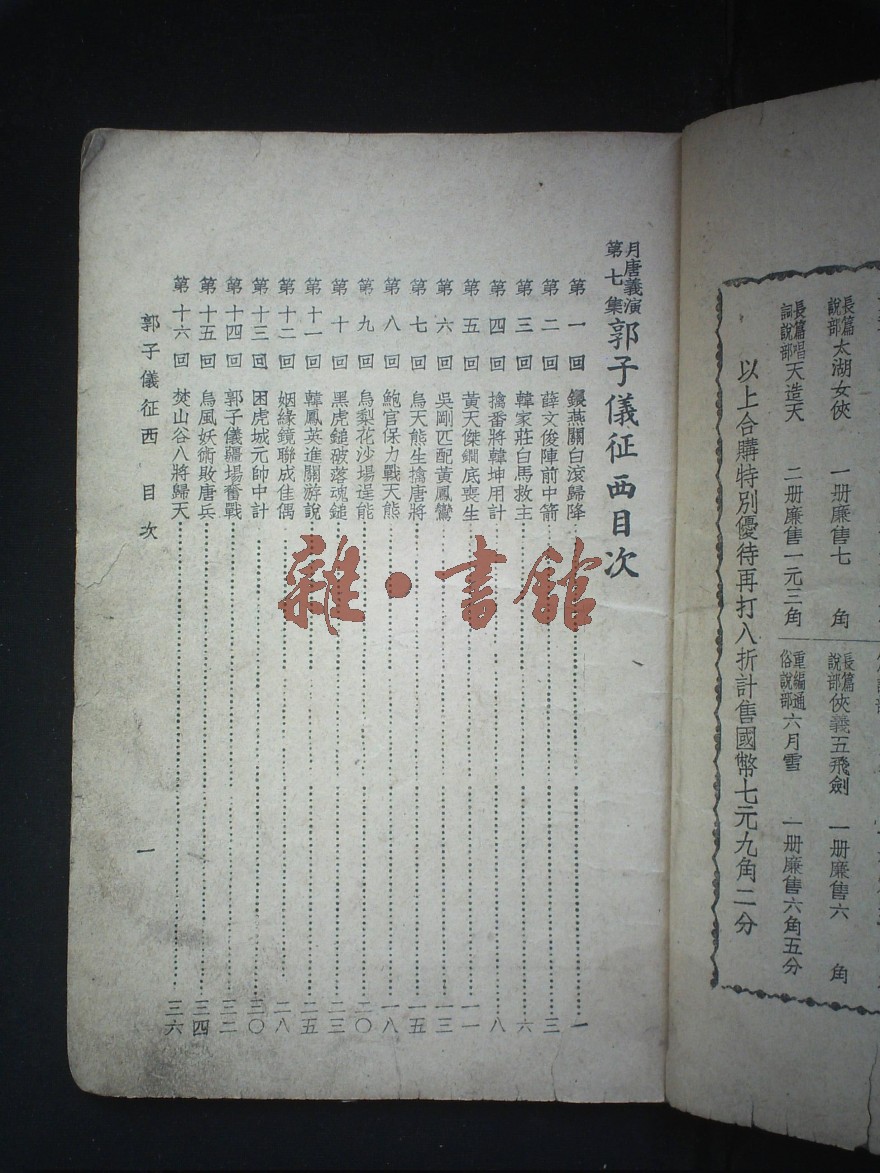 長篇說部 太湖女俠 一册廉售七 角
長篇說部 俠義五飛劍 一册廉售六 角
長篇唱詞說部 天造天 二册廉售一元三角
重編通俗說部 六月雪 一册廉售六角五分
以上合購特別優待再打八折計售國幣七元九角二分
月唐義演第七集 郭子儀征西目次
第一回 銀燕關白滾歸降 一
第二回 薛文俊陣前中箭 三
第三回 韓家莊白馬救主 六
第四回 擒番將韓坤用計 八
第五回 黃天傑鐗底喪生 一一
第六回 吳剛匹配黃鳳鸞 一三
第七回 烏天熊生擒唐將 一五
第八回 鮑官保力戰天熊 一八
第九回 烏梨花沙場逞能 二〇
第十回 黑虎鎚破落魂鎚 二三
第十一回 韓鳳英進關游說 二五
第十二回 姻緣鏡聯成佳偶 二八
第十三回 困虎城元帥中計 三〇
第十四回 郭子儀疆場奮戰 三二
第十五回 烏風妖術敗唐兵 三四
第十六回 焚山谷八將歸天 三六
郭子儀征西 目次 一
雜·書館